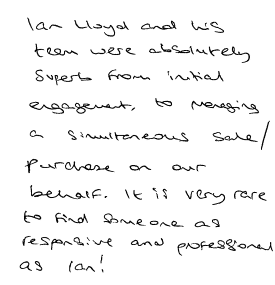 Ian Lloyd and his
team were absolutely
superb from initial
engagement, to managing
a simultaneous sale/
purchase on our
behalf. It is very rare
to find someone as
responsive and professional
as Ian!